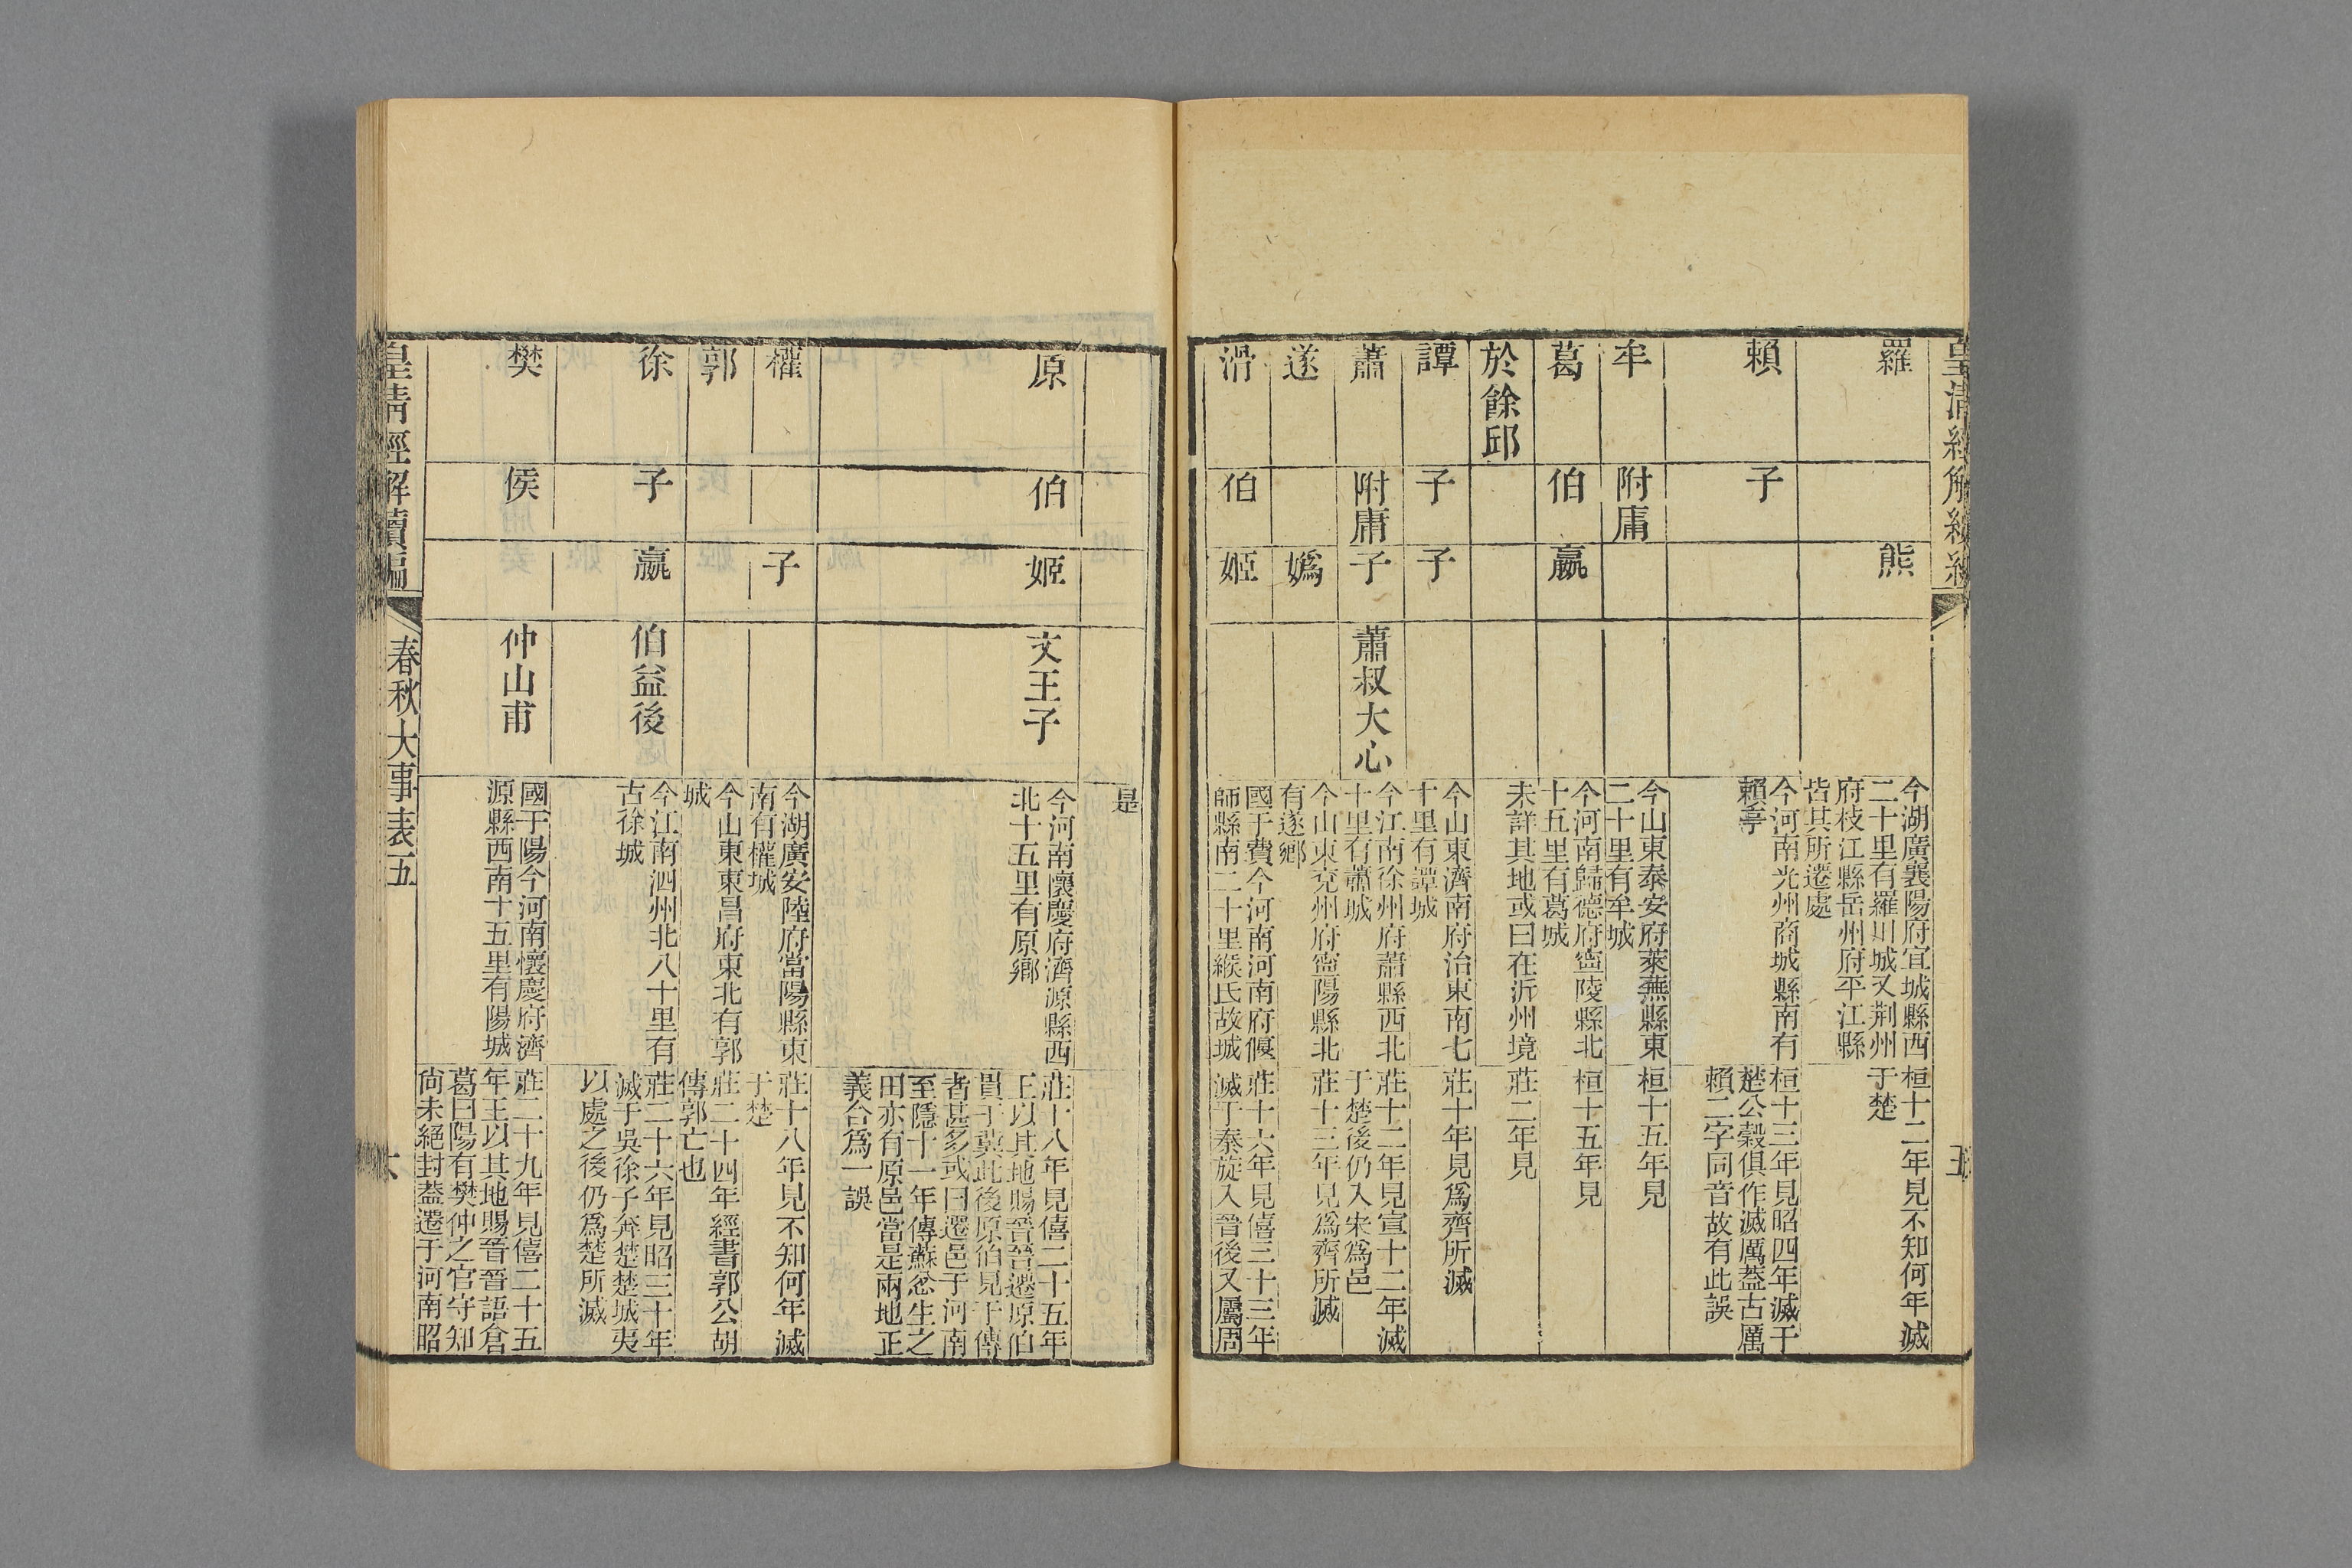 皇清經解續編
羅
熊
今湖廣襄陽府宜城縣西
二十里有羅川城又荆州
府枝江縣岳州府平江縣
皆其所遷處
桓十二年見不知何年滅
于楚
賴
子
今河南光州商城縣南有
賴亭
桓十三年見昭四年滅于
楚公榖俱作滅厲葢古厲
賴二字同音故有此誤
牟
附庸
今山東泰安府萊蕪縣東
二十里有牟城
桓十五年見
葛
伯
嬴
今河南歸德府寧陵縣北
十五里有葛城
桓十五年見
於餘邱
未詳其地或曰在沂州境
莊二年見
譚
子
子
今山東濟南府治東南七
十里有譚城
莊十年見爲齊所滅
蕭
附庸
子
蕭叔大心
今江南徐州府蕭縣西北
十里有蕭城
莊十二年見宣十二年滅
于楚後仍入宋爲邑
遂
媯
今山東兗州府寧陽縣北
有遂鄉
莊十三年見爲齊所滅
滑
伯
姬
國于費今河南河南府偃
師縣南二十里緱氏故城
莊十六年見僖三十三年
滅于秦旋入晉後又屬周
是
原
伯
姬
文王子
今河南懷慶府濟源縣西
北十五里有原鄉
莊十八年見僖二十五年
王以其地賜晉晉遷原伯
貫于冀此後原伯見于傳
者甚多或曰遷邑于河南
至隱十一年傳蘇忿生之
田亦有原邑當是兩地正
義合爲一誤
權
子
今湖廣安陸府當陽縣東
南有權城
莊十八年見不知何年滅
于楚
郭
今山東東昌府東北有郭
城
莊二十四年經書郭公胡
傳郭亡也
徐
子
嬴
伯益後
今江南泗州北八十里有
古徐城
莊二十六年見昭三十年
滅于吳徐子奔楚楚城夷
以處之後仍爲楚所滅
樊
侯
仲山甫
國于陽今河南懷慶府濟
源縣西南十五里有陽城
莊二十九年見僖二十五
年王以其地賜晉晉語倉
葛曰陽有樊仲之官守知
尚未絕封葢遷于河南昭
皇清經解續編
春秋大事表五